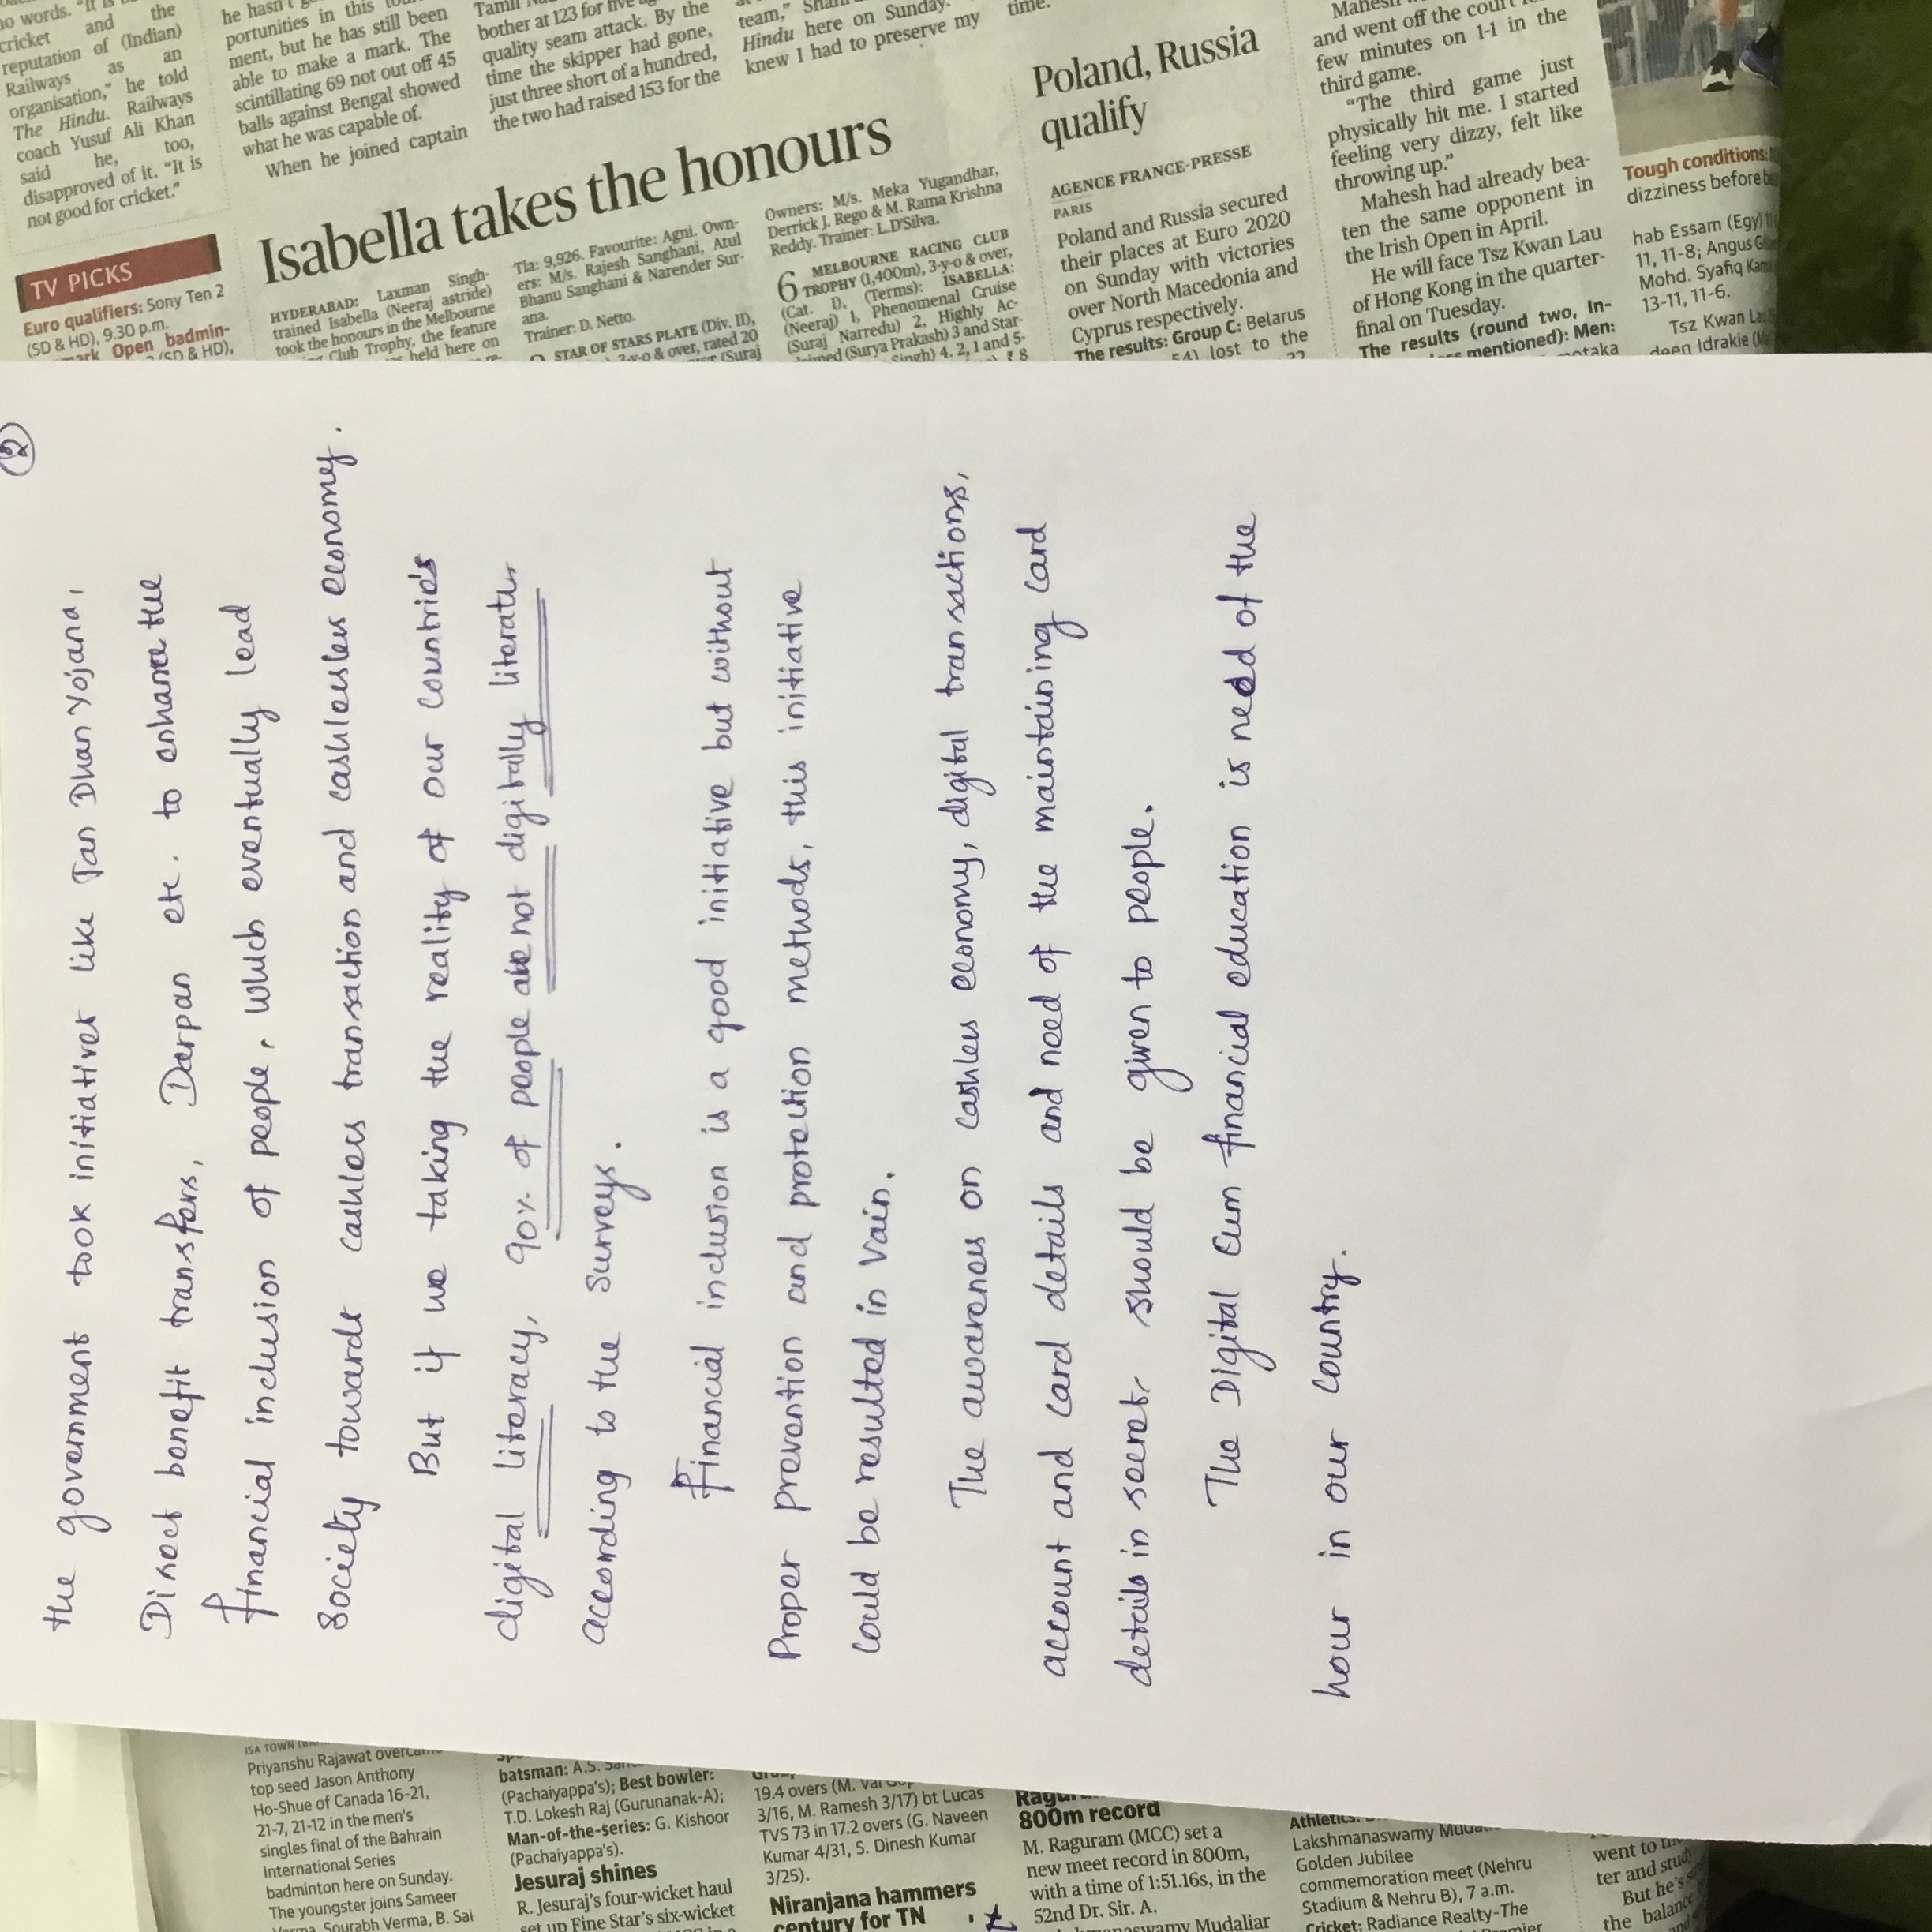 no words. "It is
cricket and the
reputation of (Indian)
Railways as an
organisation," he told
The Hindu. Railways
coach Yusuf Ali Khan
said he, too,
disapproved of it. "It is
not good for cricket."
TV PICKS
Euro qualifiers: Sony Ten 2
(SD & HD), 9.30 p.m.
Open badmin-
(SD & HD),
he hasn't
portunities in this
ment, but he has still been
able to make a mark. The
scintillating 69 not out off 45
balls against Bengal showed
what he was capable of.
When he joined captain
bother at 123 for five
quality seam attack. By the
time the skipper had gone,
just three short of a hundred,
the two had raised 153 for the
team,"
Hindu here on Sunday.
knew I had to preserve my
time.
Isabella takes the honours
HYDERABAD: Laxman Singh-
trained Isabella (Neeraj astride)
took the honours in the Melbourne
Club Trophy, the feature
held here on
Tla: 9,926. Favourite: Agni. Own-
ers: M/s. Rajesh Sanghani, Atul
Bhanu Sanghani & Narender Sur-
ana.
Trainer: D. Netto.
STAR OF STARS PLATE (Div. II),
3-y-o & over, rated 20
(Suraj
Owners: M/s. Meka Yugandhar,
Derrick J. Rego & M. Rama Krishna
Reddy. Trainer: L.D'Silva.
6 MELBOURNE RACING CLUB
TROPHY (1,400m), 3-y-o & over,
(Cat. D, (Terms): ISABELLA:
(Neeraj) 1, Phenomenal Cruise
(Suraj Narredu) 2, Highly Ac-
(Surya Prakash) 3 and Star-
Singh) 4. 2, 1 and 5-
₹ 8
Poland, Russia
qualify
AGENCE FRANCE-PRESSE
PARIS
Poland and Russia secured
their places at Euro 2020
on Sunday with victories
over North Macedonia and
Cyprus respectively.
The results: Group C: Belarus
lost to the
and went off the court
few minutes on 1-1 in the
third game.
"The third game just
physically hit me. I started
feeling very dizzy, felt like
throwing up."
Mahesh had already bea-
ten the same opponent in
the Irish Open in April.
He will face Tsz Kwan Lau
of Hong Kong in the quarter-
final on Tuesday.
The results (round two, In-
mentioned): Men:
Tough conditions:
dizziness before
hab Essam (Egy)
11, 11-8; Angus
Mohd. Syafiq
13-11, 11-6.
Tsz Kwan
deen Idrakie
2
the government took initiatives like Jan Dhan Yojana,
Direct benefit transfers, Darpan etc. to enhance the
financial inclusion of people, which eventually lead
society towards cashless transaction and cashlesles economy.
But if we taking the reality of our countrie's
digital literacy, 90% of people are not digitally literatur
according to the surveys.
Financial inclusion is a good initiative but without
Proper prevention and protection methods, this initiative
could be resulted in Vain.
The awareness on cashless economy, digital transactions,
account and card details and need of the maintaining card
details in secret, should be given to people.
The Digital Cum financial education is need of the
hour in our country.
Priyanshu Rajawat
top seed Jason Anthony
Ho-Shue of Canada 16-21,
21-7, 21-12 in the men's
singles final of the Bahrain
International Series
badminton here on Sunday.
The youngster joins Sameer
Verma, Sourabh Verma, B. Sai
batsman: A.S.
(Pachaiyappa's); Best bowler:
T.D. Lokesh Raj (Gurunanak-A);
Man-of-the-series: G. Kishoor
(Pachaiyappa's).
Jesuraj shines
R. Jesuraj's four-wicket haul
set up Fine Star's six-wicket
19.4 overs (M.
3/16, M. Ramesh 3/17) bt Lucas
TVS 73 in 17.2 overs (G. Naveen
Kumar 4/31, S. Dinesh Kumar
3/25).
Niranjana hammers
century for TN
800m record
M. Raguram (MCC) set a
new meet record in 800m,
with a time of 1:51.16s, in the
52nd Dr. Sir. A.
Mudaliar
Athletics:
Lakshmanaswamy
Golden Jubilee
commemoration meet (Nehru
Stadium & Nehru B), 7 a.m.
Cricket: Radiance Realty-The
went to
ter and study
But he's
the balance